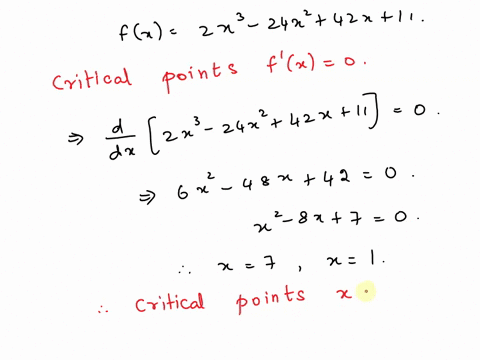 f(x) = 2x³ - 24x² + 42x + 11.
Critical points f'(x) = 0.
⇒ d/dx [2x³ - 24x² + 42x + 11] = 0.
⇒ 6x² - 48x + 42 = 0.
x² - 8x + 7 = 0.
∴ x = 7 , x = 1.
∴ Critical points x